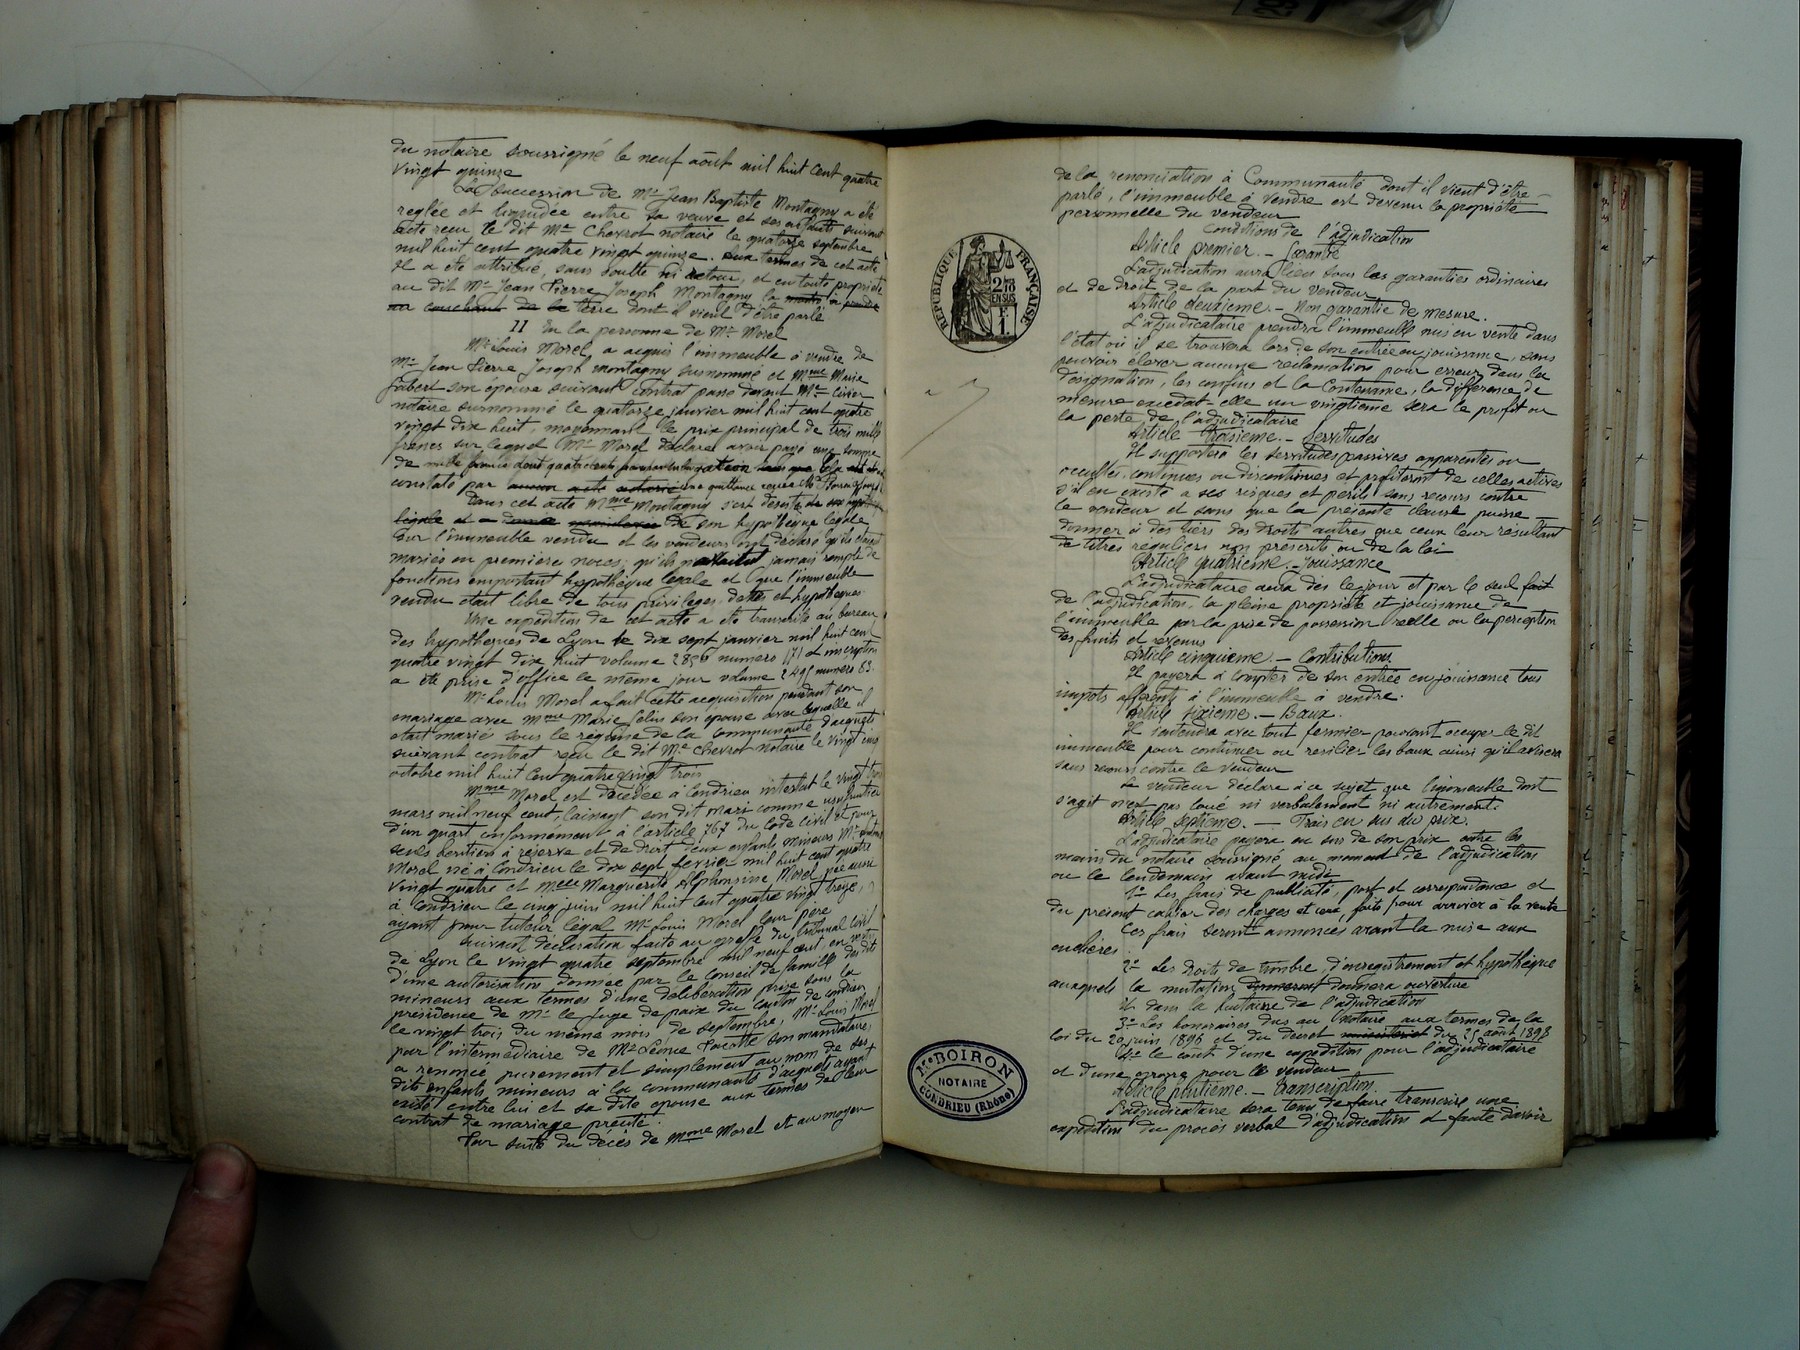 du notaire soussigné le neuf août mil huit cent quatre
vingt quinze
La succession de Mr Jean Baptiste Montagny a été
reglée et liquidée entre sa veuve et ses enfants suivant
acte reçu le dit Me Chevrot notaire le quatorze septembre
mil huit cent quatre vingt quinze. Aux termes de cet acte
Il a été attribué, sans soulte ni retour, et en toute propriété
au dit Mr Jean Pierre Joseph Montagny la
terre dont il vient d'être parlé
II En la personne de Mr Morel
Mr Louis Morel a acquis l'immeuble à vendre de
Mr Jean Pierre Joseph Montagny susnommé et Mme Marie
Jobert son épouse suivant contrat passé devant Me
notaire susnommé le quatorze janvier mil huit cent quatre
vingt dix huit, moyennant le prix principal de trois mille
francs sur lequel Mr Morel déclare avoir payé une somme
de mille francs dont
constaté par aucun acte notarié une quittance reçue
Dans cet acte Mme Montagny s'est désistée de son
légale et de son hypothèque légale
sur l'immeuble vendu et les vendeurs ont déclaré qu'ils étaient
mariés en première noces; qu'ils n'avaient jamais rempli de
fonctions emportant hypothèque légale et que l'immeuble
vendu était libre de tous privilèges, dettes et hypothèques.
Une expédition de cet acte a été transcrite au bureau
des hypothèques de Lyon le dix sept janvier mil huit cent
quatre vingt dix huit volume numéro 171 et inscription
a été prise d'office le même jour volume 2495 numéro 63.
Mr Louis Morel a fait cette acquisition pendant son
mariage avec Mme Marie son épouse avec laquelle il
était marié sous le régime de la communauté d'acquêts
suivant contrat reçu le dit Me Chevrot notaire le vingt cinq
octobre mil huit cent quatre vingt trois
Mme Morel est décédée à Condrieu intestat le vingt trois
mars mil neuf cent, laissant son dit mari comme usufruitier
d'un quart conformément à l'article 767 du Code civil et pour
seuls héritiers à réserve et de droit deux enfants mineurs Mr
Morel né à Condrieu le dix sept février mil huit cent quatre
vingt quatre et Melle Marguerite Alphonsine Morel née aussi
à Condrieu le cinq juin mil huit cent quatre vingt treize,
ayant pour tuteur légal Mr Louis Morel leur père
Suivant déclaration faite au greffe du tribunal civil
de Lyon le vingt quatre septembre mil neuf cent, en vertu
d'une autorisation donnée par le Conseil de famille des dits
mineurs aux termes d'une délibération prise sous la
présidence de Mr le Juge de paix du canton de Condrieu
le vingt trois du même mois de septembre, Mr Louis Morel
par l'intermédiaire de Me Léonce son mandataire,
a renoncé purement et simplement au nom de ses
dits enfants mineurs à la communauté d'acquêts ayant
existé entre lui et sa dite épouse aux termes de leur
contrat de mariage précité.
Par suite du décès de Mme Morel et au moyen
de la renonciation à Communauté dont il vient d'être
parlé, l'immeuble à vendre est devenu la propriété
personnelle du vendeur
Conditions de l'adjudication
Article premier. - Garantie
L'adjudication aura lieu sous les garanties ordinaires
et de droit de la part du vendeur
Article deuxième. - Non garantie de mesure.
L'adjudicataire prendra l'immeuble mis en vente dans
l'état où il se trouvera lors de son entrée en jouissance, sans
pouvoir élever aucune réclamation pour erreur dans la
désignation, les confins et la contenance, la différence de
mesure excédat-elle un vingtième sera le profit ou
la perte de l'adjudicataire
Article troisième. - Servitudes
Il supportera les servitudes passives apparentes ou
occultes, continues ou discontinues et profitera de celles actives
s'il en existe a ses risques et périls sans recours contre
le vendeur et sans que la présente clause puisse
donner à des tiers des droits autres que ceux leur résultant
de titres réguliers non prescrits ou de la loi
Article quatrième. - Jouissance
L'adjudicataire aura dès le jour et par le seul fait
de l'adjudication, la pleine propriété et jouissance de
l'immeuble par la prise de possession réelle ou la perception
des fruits et revenus
Article cinquième. - Contributions.
Il payera à compter de son entrée en jouissance tous
impots afférents à l'immeuble à vendre.
Article sixième. - Baux.
Il s'entendra avec tout fermier pouvant occuper le dit
immeuble pour continuer ou résilier les baux ainsi qu'il avisera
sans recours contre le vendeur
Le vendeur déclare à ce sujet que l'immeuble dont
s'agit n'est pas loué ni verbalement ni autrement.
Article septième. - Frais en sus du prix.
L'adjudicataire payera en sus de son prix entre les
mains du notaire soussigné au moment de l'adjudication
ou le lendemain avant midi
1° Les frais de publicité, port et correspondance et
du présent cahier des charges et ceux faits pour arriver à la vente
Ces frais seront annoncés avant la mise aux
enchères
2° Les droits de timbre, d'enregistrement et hypothèque
auxquels la mutation donnera ouverture
Et dans la huitaine de l'adjudication
3° Les honoraires dus au notaire aux termes de la
loi du 20 juin 1896 et du décret du 25 août 1898
4° le coût d'une expédition pour l'adjudicataire
et d'une grosse pour le vendeur
Article huitième. - Transcription.
L'adjudicataire sera tenu de faire transcrire une
expédition du procès verbal d'adjudication et faute d'avoir
RÉPUBLIQUE FRANÇAISE
2/10
EN SUS
1 F.
Me BOIRON
NOTAIRE
CONDRIEU (Rhône)